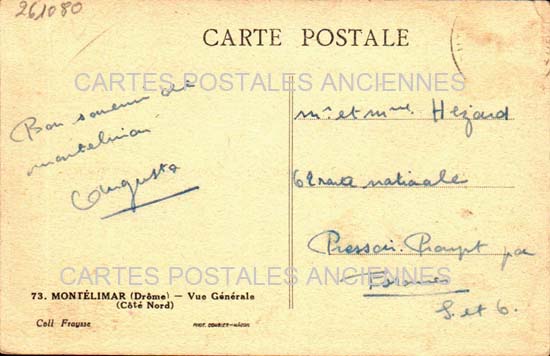 261080
CARTE POSTALE
CARTES POSTALES ANCIENNES
Bon souvenir de
montelimar
Augusta
mr et mme Hezard
62 route nationale
Pressoir Prompt par
Essonnes
S. et O.
CARTES POSTALES ANCIENNES
73. MONTÉLIMAR (Drôme) — Vue Générale
(Côté Nord)
Coll Fraysse
PHOT. COMBIER - MÂCON